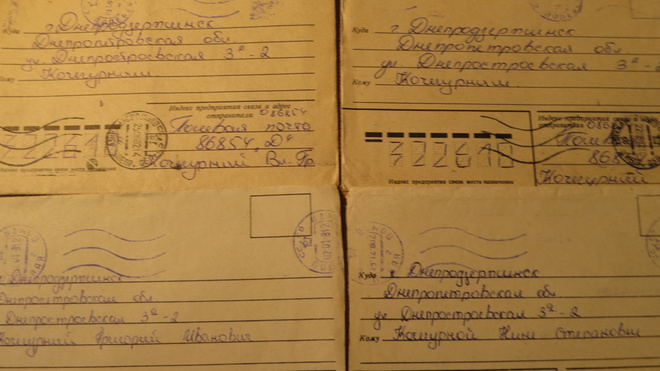 г Днепродзержинск
Днепропетровская обл
ул Днепростроевская 3а-2
Кочкурным
Индекс предприятия связи и адрес отправителя 086854
Полевая почта
86854 "Д"
Кочкурный Вл. Гр.
322610
Куда г Днепродзержинск
Днепропетровская обл
ул Днепростроевская 3а-2
Кому Кочкурным
Индекс предприятия связи и адрес
отправителя
322610
Кочкурный
Индекс предприятия связи места назначения
г Днепродзержинск
Днепропетровская обл
Днепростроевская 3а-2
Кочкурный Григорий Иванович
Куда г Днепродзержинск
Днепропетровская обл
ул Днепростроевская 3а-2
Кому Кочкурной Нине Степановны